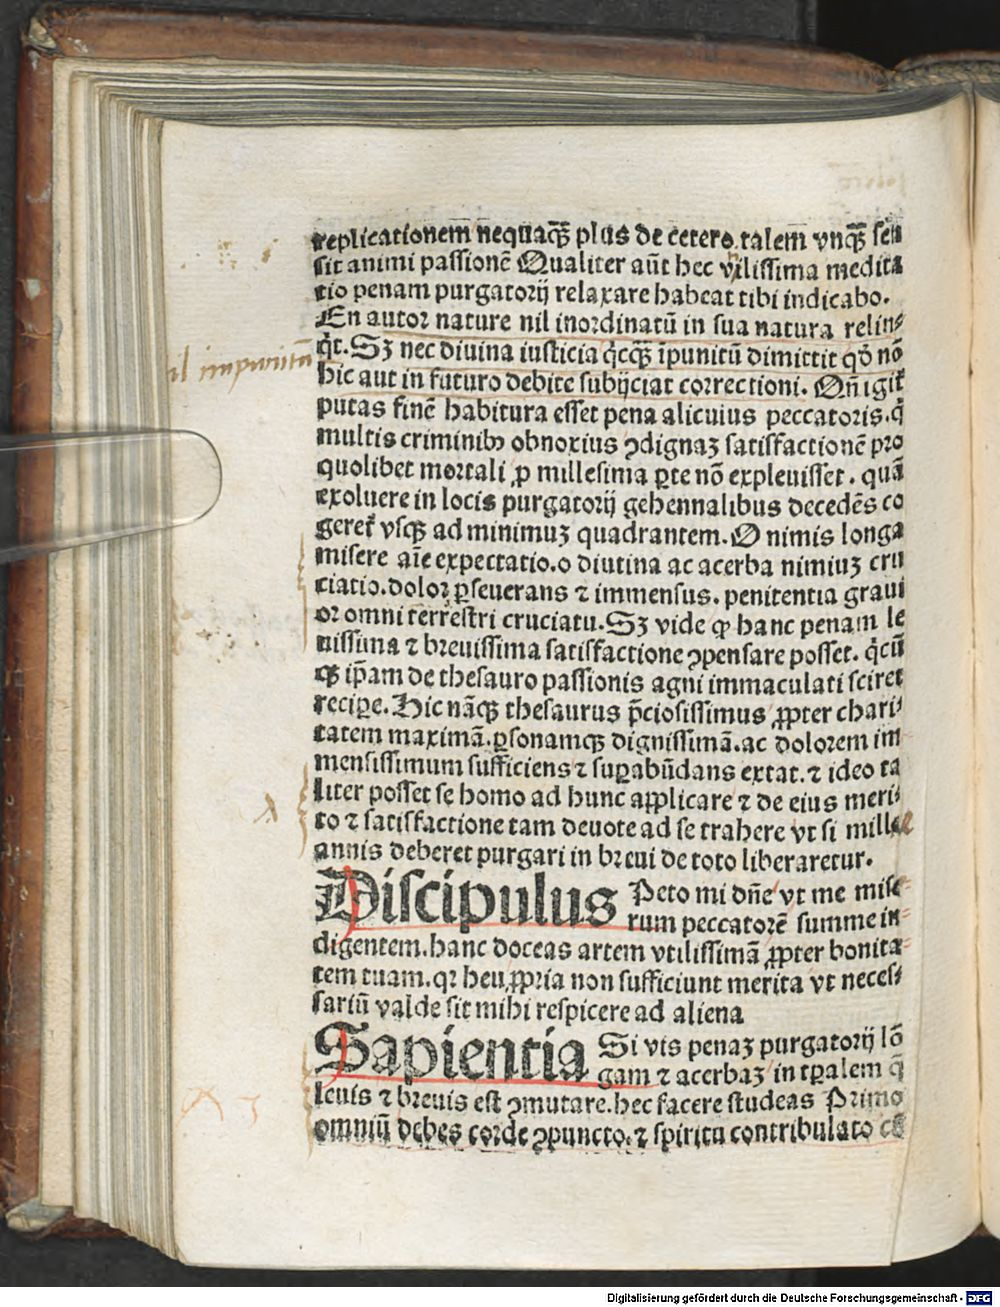 replicationem nequaq̃ꝫ plus de cetero talem vnq̃ꝫ sen
sit animi passionē Qualiter aũt hec vilissima medita
tio penam purgatorij relaxare habeat tibi indicabo.
En autor nature nil inordinatũ in sua natura relin⸗
q̇t. Sꝫ nec diuina iusticia q̇cq̃ꝫ īpunitũ dimittit qđ nō
il impunitũ
hic aut in futuro debite subijciat correctioni. Qñ igit᷑
putas finē habitura esset pena alicuius peccatoris. q̇
multis criminibꝰ obnoxius ꝯdignaꝫ satisfactionē pro
quolibet mortali ꝓ millesima ꝑte nō expleuisset. quā
exoluere in locis purgatorij gehennalibus decedēs co
geret᷑ vsqꝫ ad minimuꝫ quadrantem. O nimis longa
misere aīe expectatio. o diutina ac acerba nimiuꝫ cru
ciatio. dolor ꝑseuerans ⁊ immensus. penitentia graui
or omni terrestri cruciatu. Sꝫ vide ꝙ hanc penam le
uissima ⁊ breuissima satisfactione ꝯpensare posset. q̇cũ
qꝫ ip̄am de thesauro passionis agni immaculati sciret
recipe. Hic nāqꝫ thesaurus p̄ciosissimus ꝓpter chari⸗
tatem maximā. ꝑsonamqꝫ dignissimā. ac dolorem im
mensissimum sufficiens ⁊ suꝑabũdans extat. ⁊ ideo ta
liter posset se homo ad hunc applicare ⁊ de eius meri⸗
to ⁊ satisfactione tam deuote ad se trahere vt si mille
annis deberet purgari in breui de toto liberaretur.
Discipulus Peto mi dñe vt me mise⸗
rum peccatorē summe in⸗
digentem. hanc doceas artem vtilissimā ꝓpter bonita⸗
tem tuam. qꝛ heu ꝓpria non sufficiunt merita vt neces⸗
sariũ valde sit mihi respicere ad aliena
Sapientia Si vis penaꝫ purgatorij lō
gam ⁊ acerbaꝫ in tꝑalem q̄
leuis ⁊ breuis est ꝯmutare. hec facere studeas Primo
omniũ debes corde ꝯpuncto. ⁊ spiritu contribulato
Digitalisierung gefördert durch die Deutsche Forschungsgemeinschaft - DFG